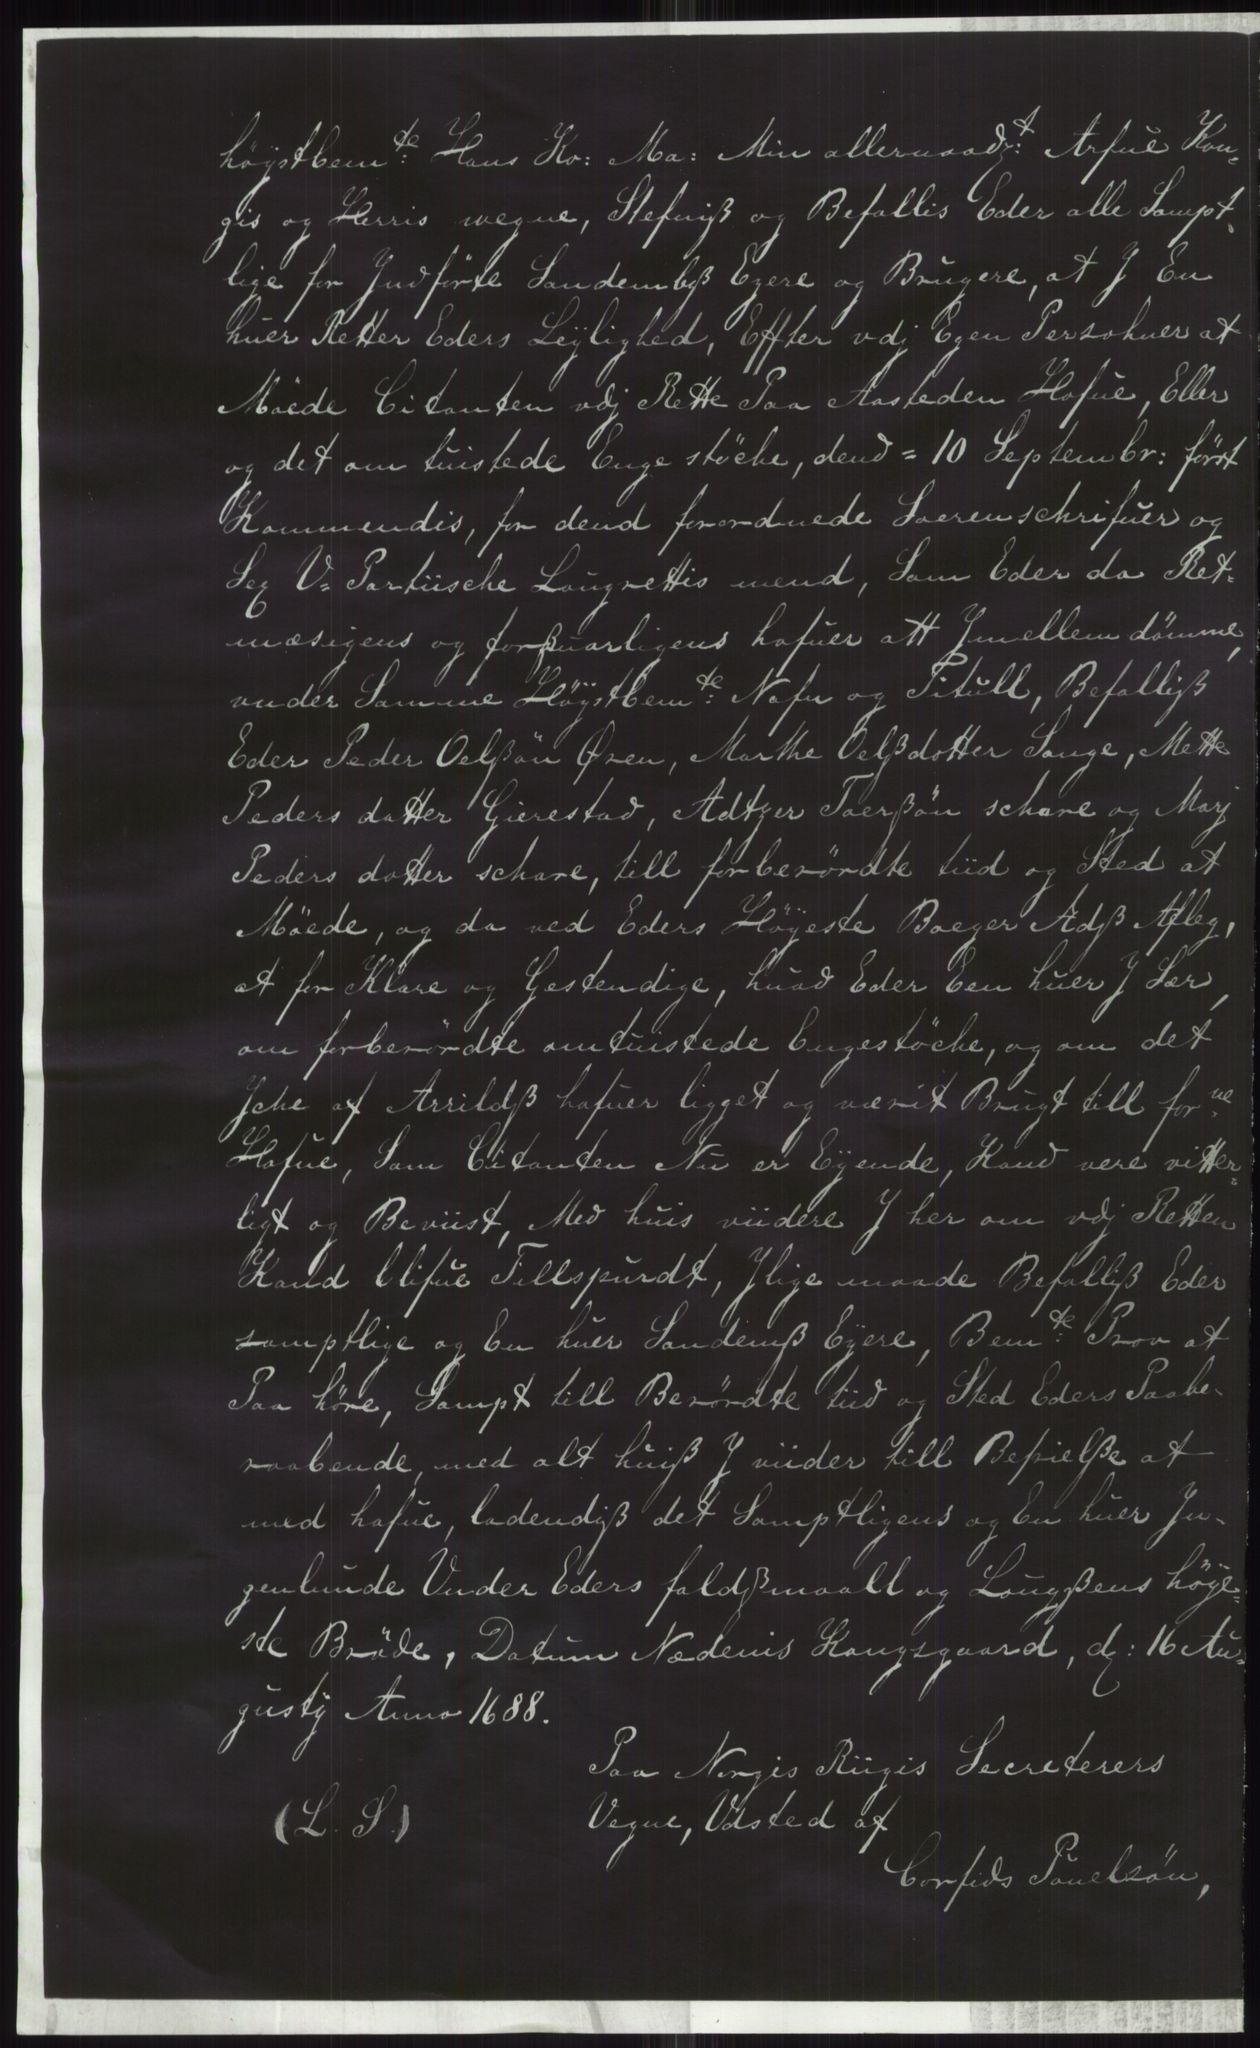 höÿstbem:te Hans Ko: Ma: Min allernaadz:t Arfue Kon-
gis og Herris wegne, Stefniß og Befallis Eder alle Sampt
lige for Indförte Sandembß Egere og Brugere, at J En
huer Retter Eders Leÿlighed, Effter vdj Egen Persohner at
Möede Citanten vdj Rette Paa Aasteden Hofue, Eller
og det om tuistede Enge stöcke, dend = 10 Septembr: först
Kommendis, for dend forordnede Soerenschrifuer og
Sex V= Partiische Laugrettis mend, Som Eder da Ret-
mæsigens og forßuarligens hafuer att Jmellem dömme,
vnder Samme Höÿstbem:te Nafn og Titull, Befalliß
Eder Peder Oelßön Øren, Marthe Oelßdotter Sange, Mette
Peders datter Gierestad, Adtzer Taerßön schare og Marj
Peders dotter schare, till forberördte tiid og Sted at
Möede, og da ved Eders Höÿeste Boeger Ædß Afleg,
at for Klare og Gestendige, huad Eder Een huer J Sær,
om forberördte omtuistede Engestöcke, og om det
Jcke af Arrildß hafuer ligget og værit Brugt till for:ne
Hafue, Som Citanten Nu er Eÿende, Kand vere vitter-
ligt og Beviist, Med huis viidere J her om vdj Retten
Kand blifue Tillspurdt, Jlige maade Befalliß Eder
samptlige og En huer Sandemß Eÿere, Bem:te Prov at
Paa höre, Sampt till Berördte tiid og Sted Eders Paabe-
raabende, med alt huiß J viider till Befrielße at
med hafue, ladendiß det Samptligens og En huer Jn-
genlunde Vnder Eders faldßmaall og Laugßens höÿe-
ste Bröde, Datum Nædenis Kongsgaard, d: 16 Au-
gustij Anno 1688.
Paa Norgis Riigis Secreterers
(L. S.) Vegne, Vdsted af
Corfids Pouelsön,